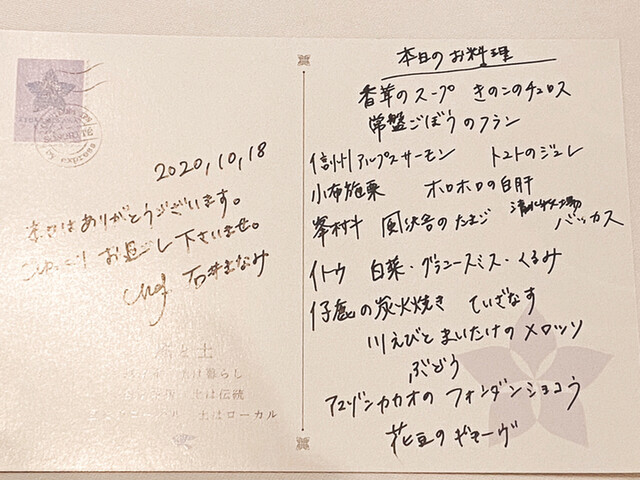 by express
2020,10,18
ありがとうございます。
お過ごし下さいませ。
chef 石井まなみ
土は暮らし
土は伝統
土はローカル
本日のお料理
香茸のスープ きのこのチュロス
常盤ごぼうのフラン
信州アルプスサーモン トマトのジュレ
小布施栗 ホロホロの白肝
峯村牛 風沢舎のたまご 清水牧場 バッカス
イトウ 白菜・グラニースミス・くるみ
仔鹿の炭火焼き ていざなす
川えびとまいたけのメロッソ
ぶどう
アマゾンカカオのフォンダンショコラ
花豆のギモーヴ